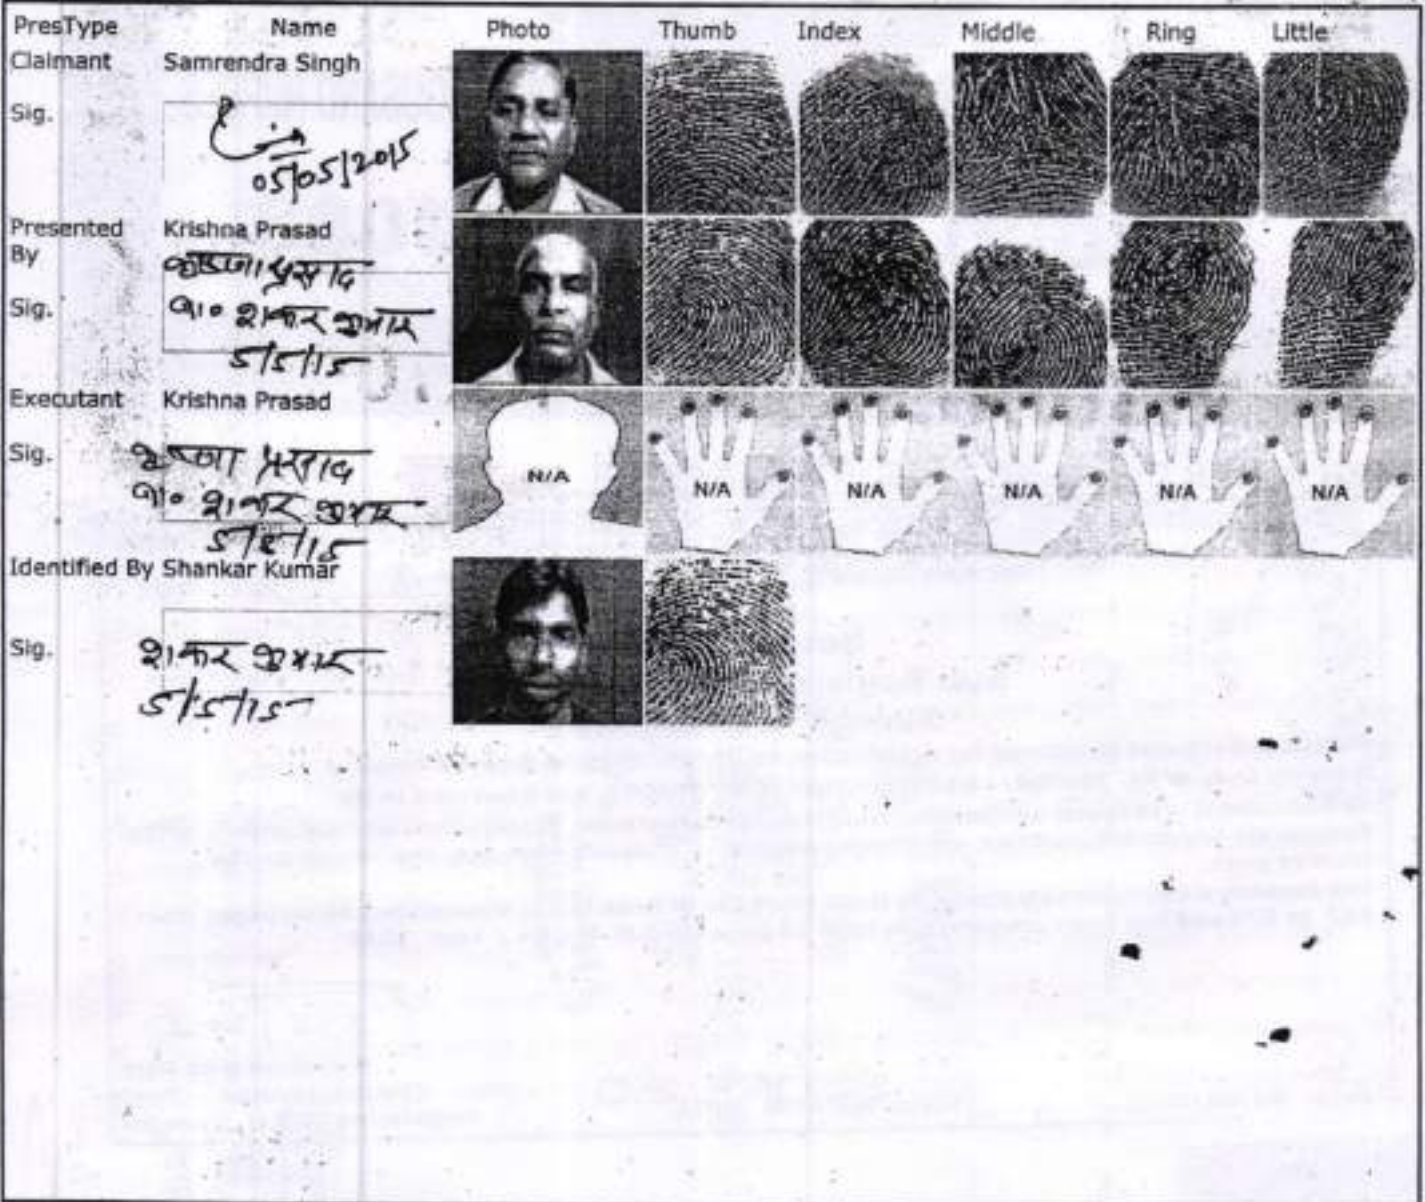 PresType Name Photo Thumb Index Middle Ring Little
Claimant Samrendra Singh
Sig.
05/05/2015
Presented By Krishna Prasad
कृष्णा प्रसाद
Sig. शंकर कुमार
5/5/15
Executant Krishna Prasad
N/A N/A N/A N/A N/A N/A
Sig. कृष्णा प्रसाद
शंकर कुमार
5/5/15
Identified By Shankar Kumar
Sig. शंकर कुमार
5/5/15